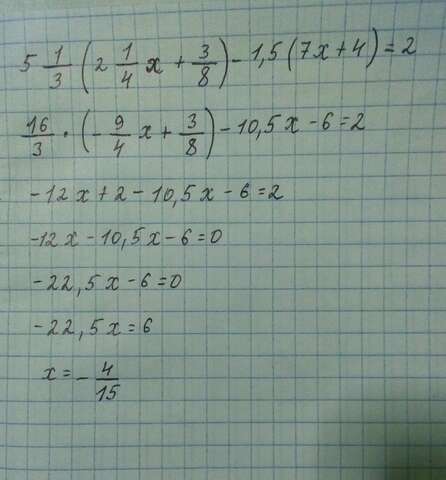 5 1/3 (2 1/4 x + 3/8) - 1,5 (7x + 4) = 2
16/3 · (- 9/4 x + 3/8) - 10,5 x - 6 = 2
- 12 x + 2 - 10,5 x - 6 = 2
-12 x - 10,5 x - 6 = 0
- 22,5 x - 6 = 0
- 22,5 x = 6
x = - 4/15